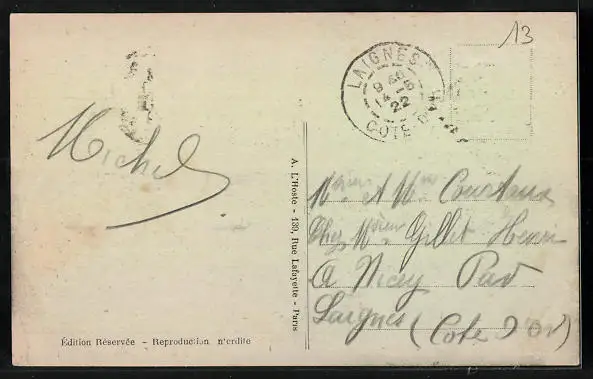 13
LAIGNES
9 30
14 -5
22
COTE-D'OR
Michel
A. L'Hoste - 139, Rue Lafayette - Paris
Mr et Mme
Chez Mr Gillet Henri
A Nicey Par
Laignes (Cote D'Or)
Édition Réservée - Reproduction interdite